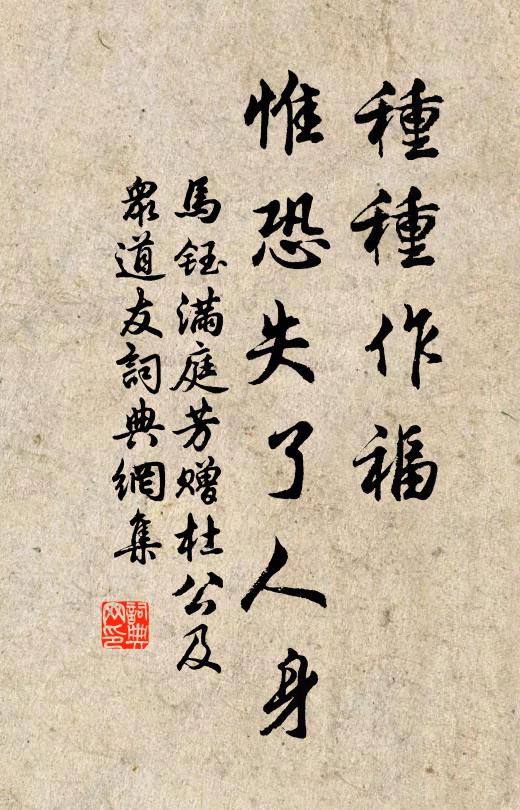 種種作福
惟恐失了人身
馬鈺滿庭芳贈杜公及
眾道友詞典網集
詞典
网印